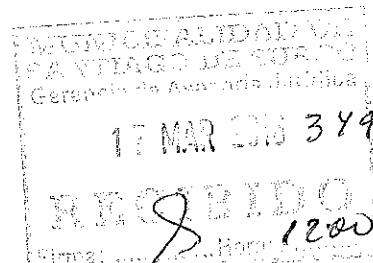 MUNICIPALIDAD DE
SANTIAGO DE SURCO
Gerencia de Asesoría Jurídica
17 MAR 349
RECIBIDO
Firma: Hora: 1200